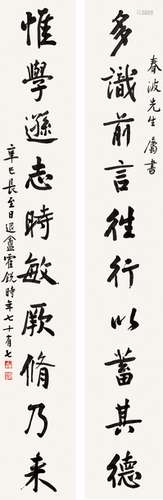 多識前言徃行以蓄其德
春波先生屬書
惟學遜志時敏厥脩乃来
辛巳長至日退盦霍銳時年七十有七